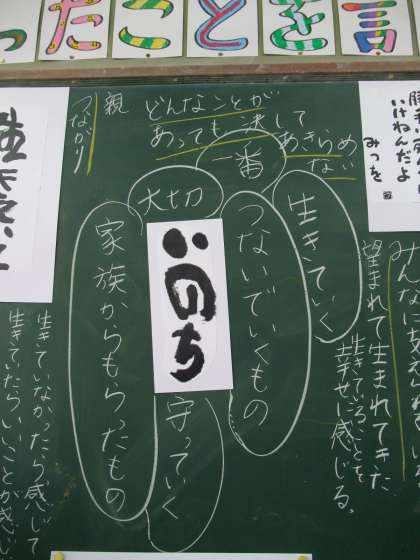 ったことを言
勝手に死んじゃ
いけねんだよ
みつを
どんなことが
あっても決して
あきらめ
ない
親
つながり
一番
大切
生きていく
つないでいくもの
いのち
家族からもらったもの
守っていく
望まれて生まれてきた
生きていることを
幸せに感じる。
生きていなかったら感じて
生きていたらいいことが